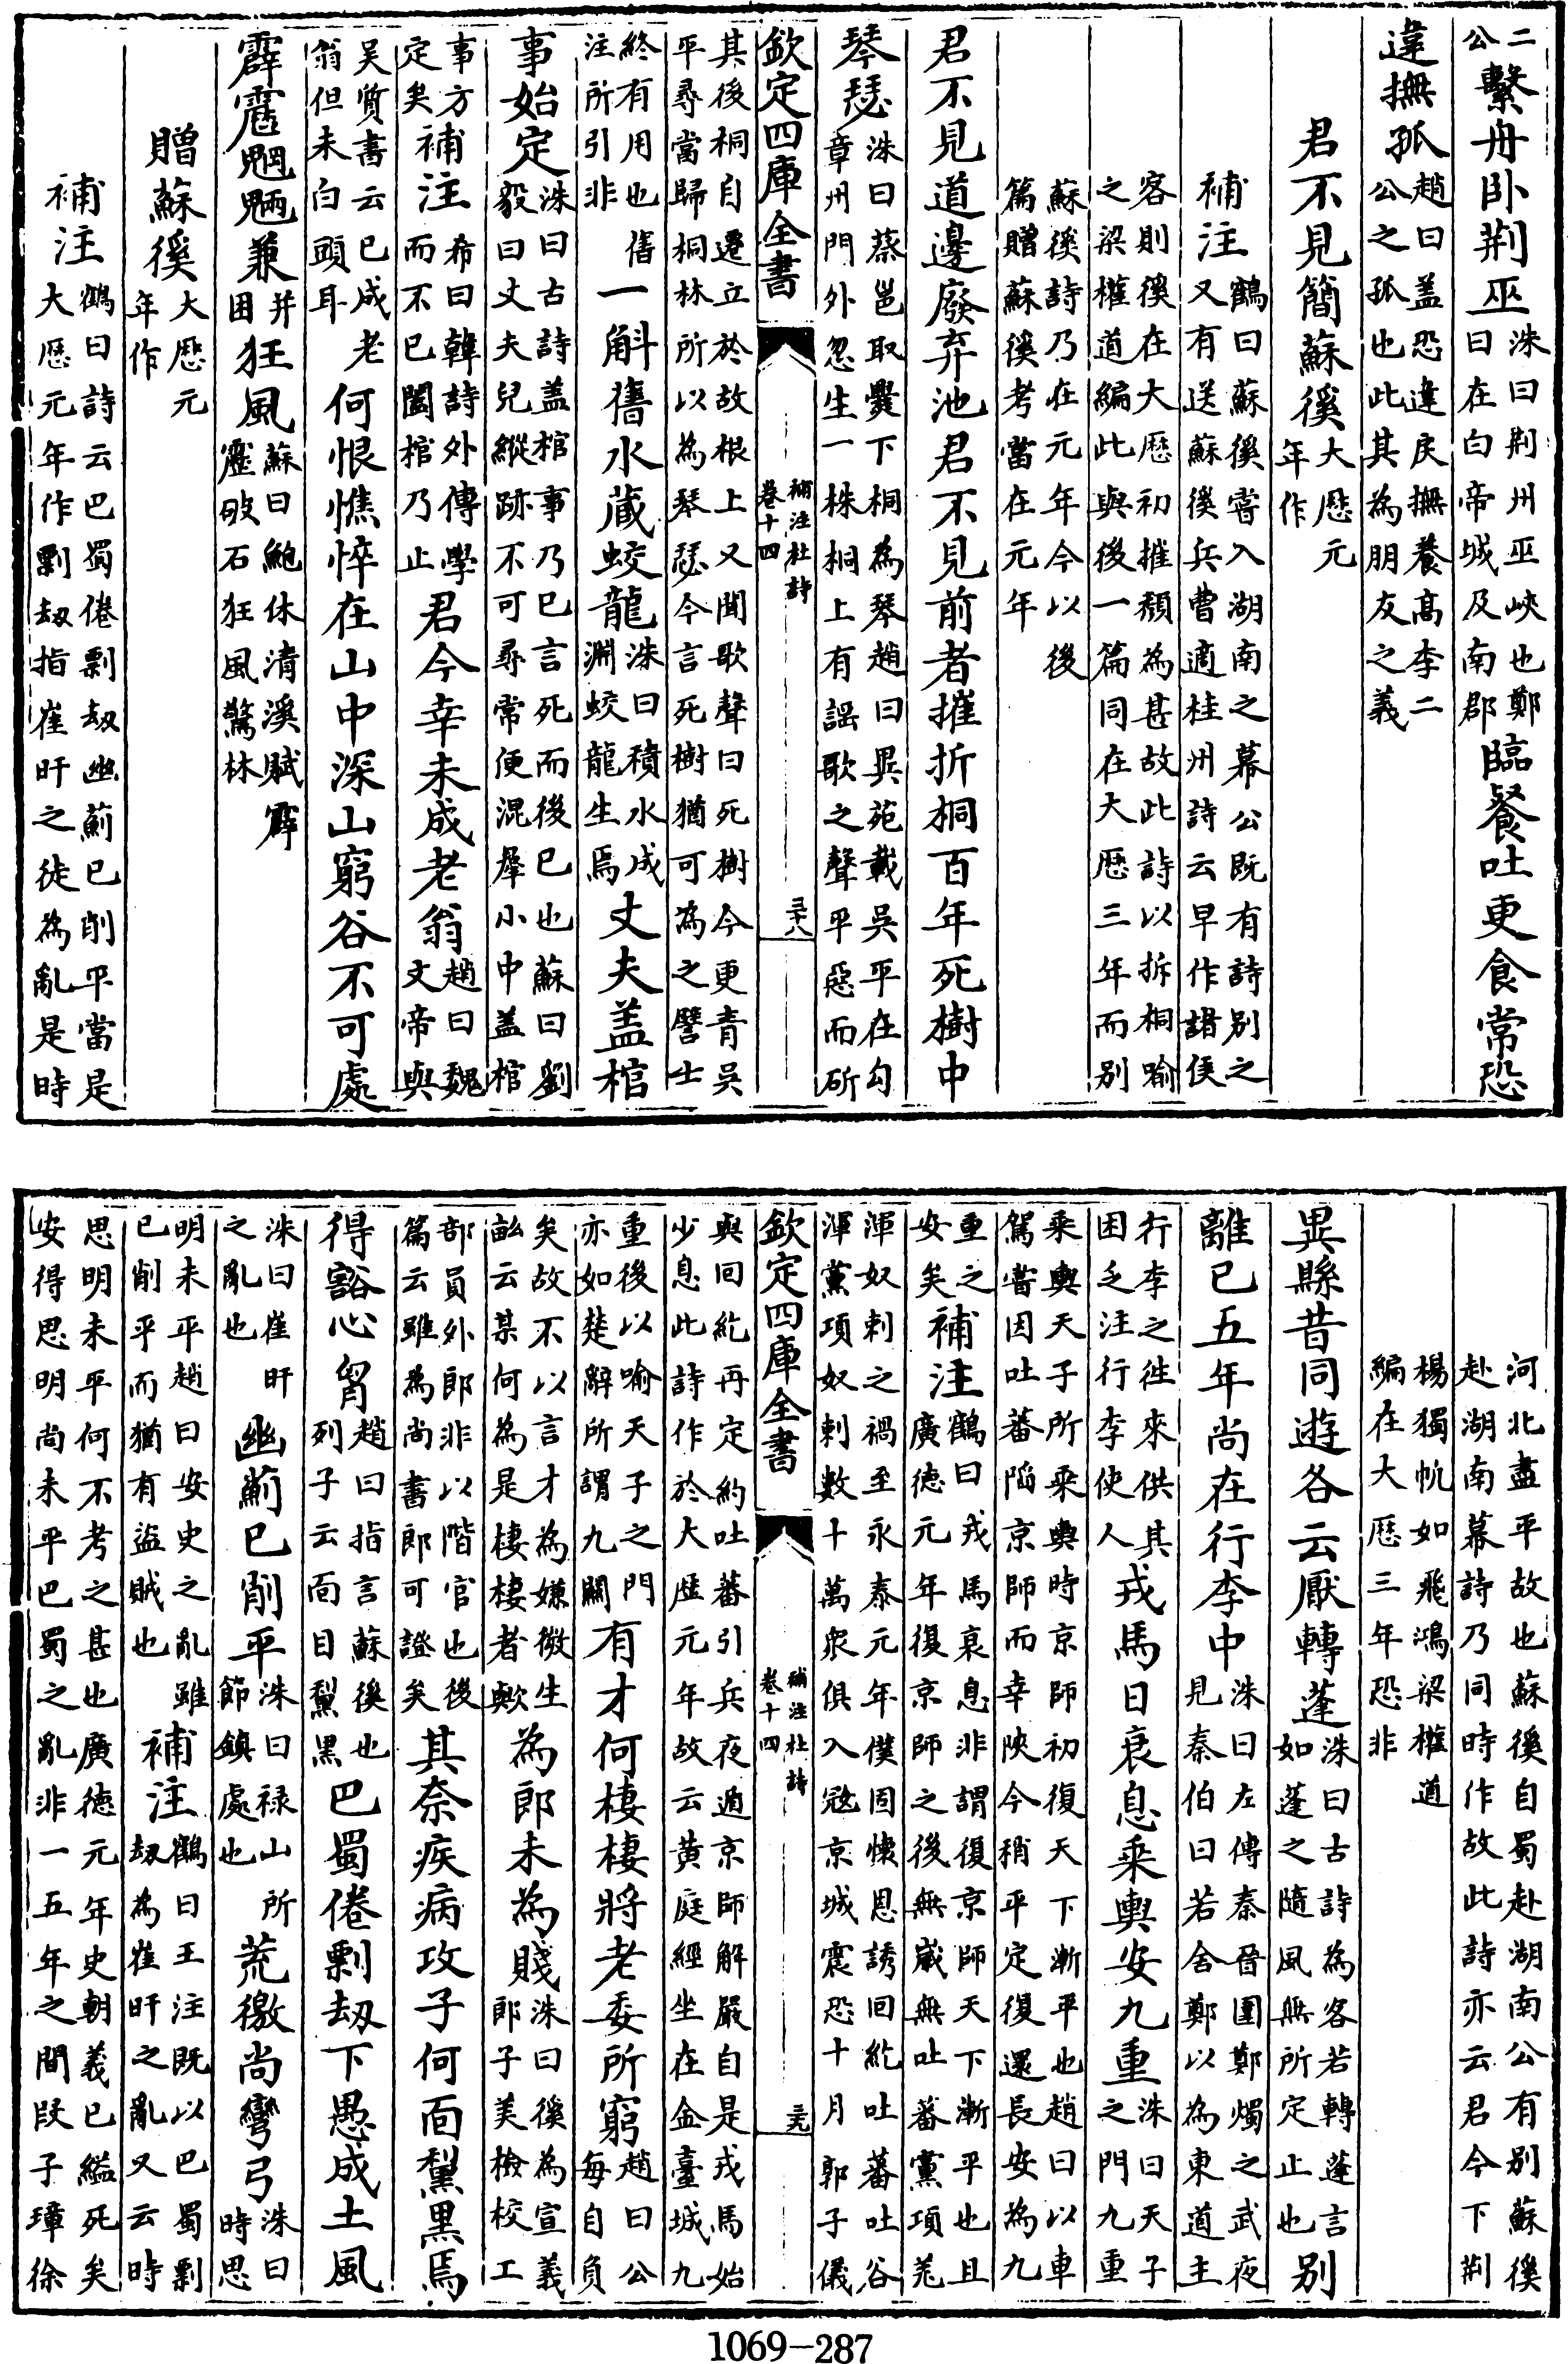 二公繫舟卧荆巫洙曰荆州巫峽也鄭曰在白帝城及南郡臨餐吐更食常恐
違撫孤趙曰盖恐違戾撫養高李二公之孤也此其為朋友之義
君不見簡蘇徯大厯元年作
補注鶴曰蘇徯嘗入湖南之幕公既有詩别之又有送蘇徯兵曹適桂州詩云早作諸侯
客則徯在大厯初摧頽為甚故此詩以拆桐喻之梁權道編此與後一篇同在大厯三年而别
蘇徯詩乃在元年今以後篇贈蘇徯考當在元年
君不見道邊廢弃池君不見前者摧折桐百年死樹中
琴瑟洙曰蔡邕取爨下桐為琴趙曰異苑載吳平在勾章州門外忽生一株桐上有謡歌之聲平惡而斫
欽定四庫全書
補注杜詩
卷十四
三十八
其後桐自遷立於故根上又聞歌聲曰死樹今更青吳平尋當歸桐林所以為琴瑟今言死樹猶可為之譬士
終有用也舊注所引非一斛舊水藏蛟龍洙曰積水成淵蛟龍生焉丈夫盖棺
事始定洙曰古詩盖棺事乃已言死而後已也蘇曰劉毅曰丈夫兒縱跡不可尋常便混羣小中盖棺
事方定矣補注希曰韓詩外傳學而不已闔棺乃止君今幸未成老翁趙曰魏文帝與
吴質書云已成老翁但未白頭耳何恨憔悴在山中深山窮谷不可處
霹靂魍魎兼并困狂風蘇曰鮑休清溪賦霹靂破石狂風驚林
贈蘇徯大厯元年作
補注鶴曰詩云巴蜀倦剽刼幽薊已削平當是大厯元年作剽刼指崔旰之徒為亂是時
河北盡平故也蘇徯自蜀赴湖南公有别蘇徯赴湖南幕詩乃同時作故此詩亦云君今下荆
楊獨帆如飛鴻梁權道編在大厯三年恐非
異縣昔同遊各云厭轉蓬洙曰古詩為客若轉蓬言如蓬之隨風無所定止也别
離已五年尚在行李中洙曰左傳秦晉圍鄭燭之武夜見秦伯曰若舍鄭以為東道主
行李之徃來供其困乏注行李使人戎馬日衰息乘輿安九重洙曰天子之門九重
乘輿天子所乘輿時京師初復天下漸平也趙曰以車駕嘗因吐蕃陷京師而幸陜今稍平定復還長安為九
重之安矣補注鶴曰戎馬衰息非謂復京師天下漸平也且廣德元年復京師之後無嵗無吐蕃党項羌
渾奴剌之禍至永泰元年僕固懷恩誘回紇吐蕃吐谷渾黨項奴剌數十萬衆俱入冦京城震恐十月郭子儀
欽定四庫全書
補注杜詩
卷十四
三十九
與回紇再定約吐蕃引兵夜遁京師解嚴自是戎馬始少息此詩作於大厯元年故云黄庭經坐在金臺城九
重後以喻天子之門亦如楚辭所謂九關有才何棲棲將老委所窮趙曰公每自負
矣故不以言才為嫌微生畝云某何為是棲棲者歟為郎未為賤洙曰徯為宣義郎子美檢校工
部員外郎非以階官也後篇云雖為尚書郎可證矣其奈疾病攻子何面黧黑焉
得豁心胷趙曰指言蘇徯也列子云面目黧黑巴蜀倦剽刼下愚成土風
洙曰崔旰之亂也幽薊已削平洙曰禄山所節鎮處也荒徼尚彎弓洙曰時思
明未平趙曰安史之亂雖已削平而猶有盜賊也補注鶴曰王注既以巴蜀剽刼為崔旰之亂又云時
思明未平何不考之甚也廣徳元年史朝義已縊死矣安得思明尚未平巴蜀之亂非一五年之間段子璋徐
1069-287